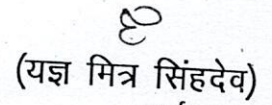 (यज्ञ मित्र सिंहदेव)